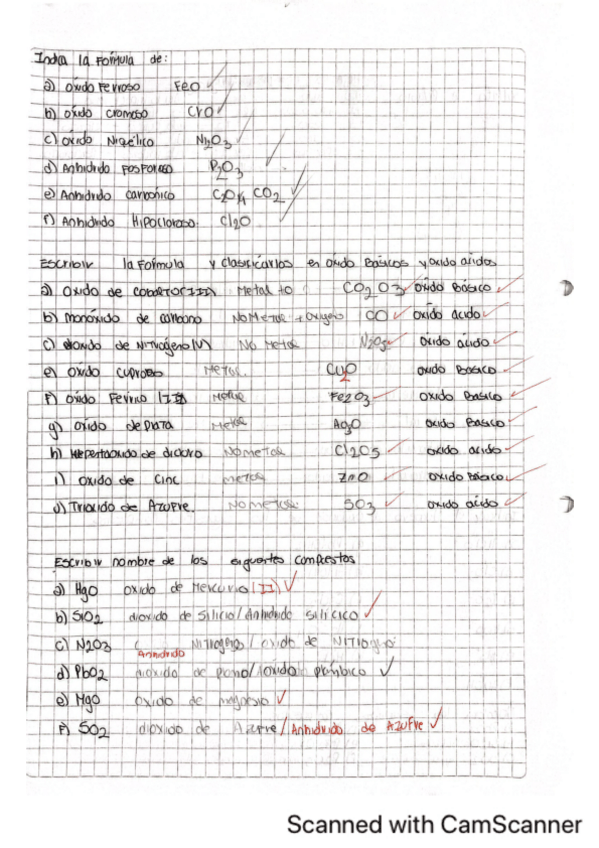 Indica la Fórmula de:
a) oxido Ferroso FeO
b) oxido cromoso CrO
c) oxido Niquélico Ni2O3
d) Anhidrido FOSFOROSO P2O3
e) Anhidrido carbonico C2O4 CO2
f) Anhidrido Hipocloroso. Cl2O
Escribir la Fórmula y clasificarlos en oxido Básicos y oxido acidos
a) Oxido de cobalto (III) Metal + O CO2O3 oxido Básico
b) monóxido de carbono No Metal + Oxigeno CO oxido acido
c) dioxido de Nitrógeno (V) No Metal N2O5 oxido acido
e) oxido cuproso Metal Cu2O oxido Basico
f) oxido Ferrico III Metal Fe2O3 Oxido Basico
g) oxido de plata Metal Ag2O oxido Basico
h) de dicloro No metal Cl2O5 oxido acido
i) oxido de cinc metal ZnO oxido Básico
J) Trioxido de Azufre. No metal SO3 oxido acido
Escribir nombre de los siguientes compuestos
a) HgO oxido de Mercurio (II)
b) SiO2 dioxido de Silicio / Anhidrido silicico
c) N2O3 Anhidrido Nitrogeno / oxido de Nitrogeno
d) PbO2 dioxido de plomo / oxido plúmbico
e) MgO oxido de magnesio
F) SO2 dioxido de Azufre / Anhidrido de Azufre
Scanned with CamScanner